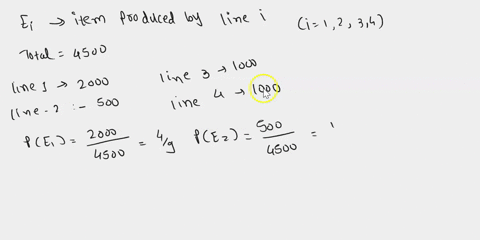 Ei → item produced by line i (i=1,2,3,4)
Total = 4500
line 1 → 2000
line 3 → 1000
line - 2 :- 500
line 4 → 1000
P(E1) = 2000/4500 = 4/9 P(E2) = 500/4500 =